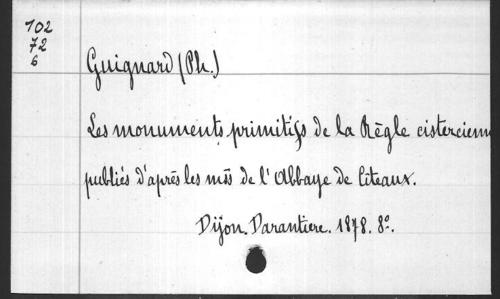 102
72
6
Guignard (Ph.)
Les monuments primitifs de la Règle cistercienn
publiés d'après les mss de l'Abbaye de Citeaux.
Dijon. Darantiere. 1878. 8º.